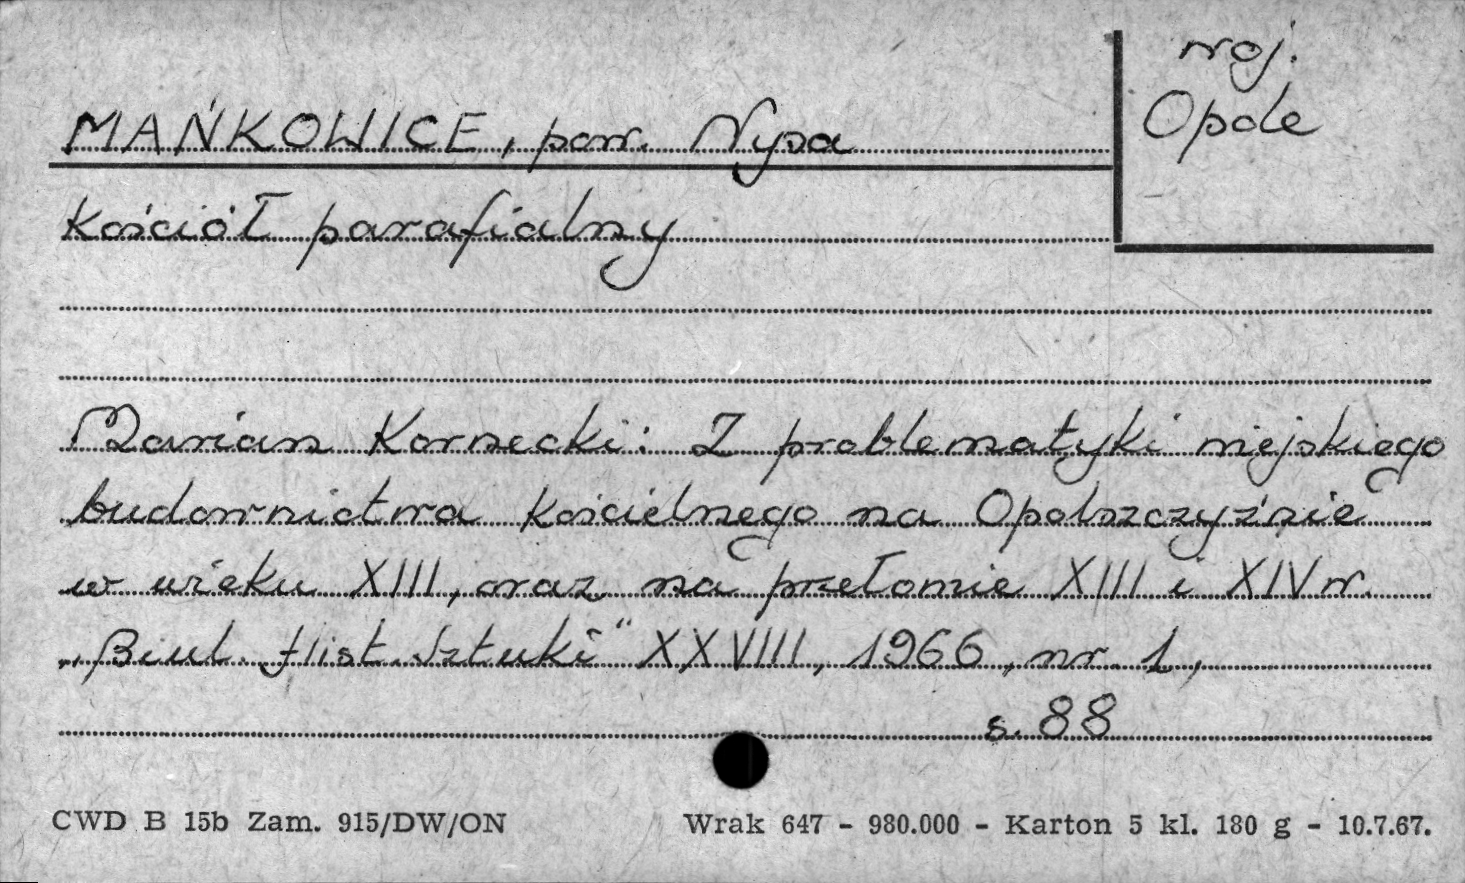 woj.
Opole
MAŃKOWICE, pow. Nysa
Kościół parafialny
Marian Kornecki: Z problematyki miejskiego
budownictwa kościelnego na Opolszczyźnie
w wieku XIII, oraz na przełomie XIII i XIV w.
„Biul. Hist. Sztuki" XXVIII, 1966, nr. 1,
s. 88
CWD B 15b Zam. 915/DW/ON Wrak 647 - 980.000 - Karton 5 kl. 180 g - 10.7.67.